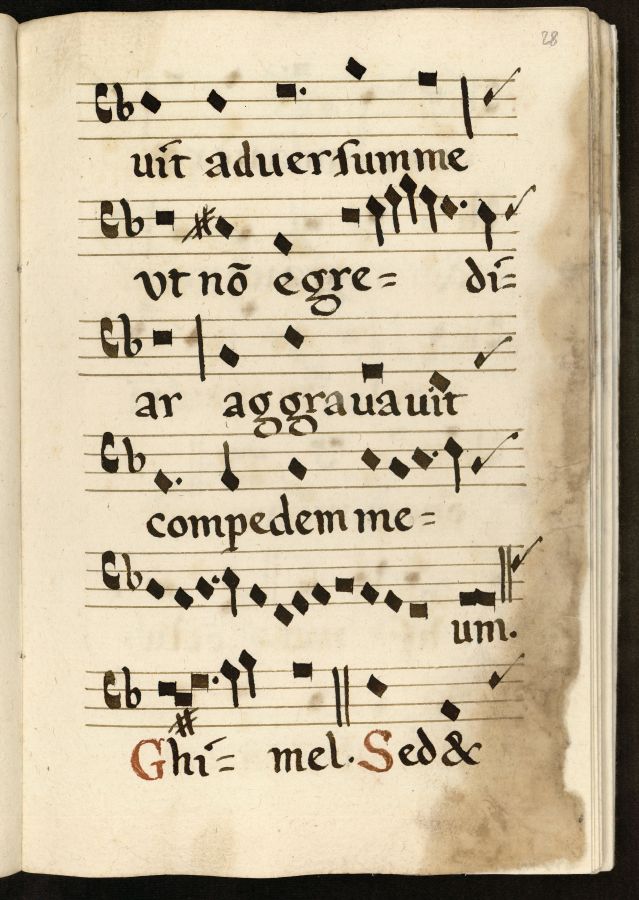 28
uit aduersum me
vt nō egre= di=
ar aggrauauit
compedem me=
um.
Ghi= mel. Sed &